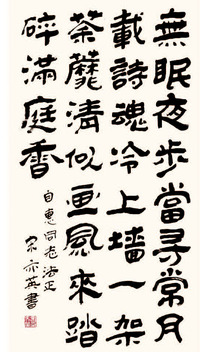 無眠夜步當尋常月
載詩魂冷上墻一架
荼蘼清似画風來踏
碎滿庭香
自惠同志法正
宋亦英書